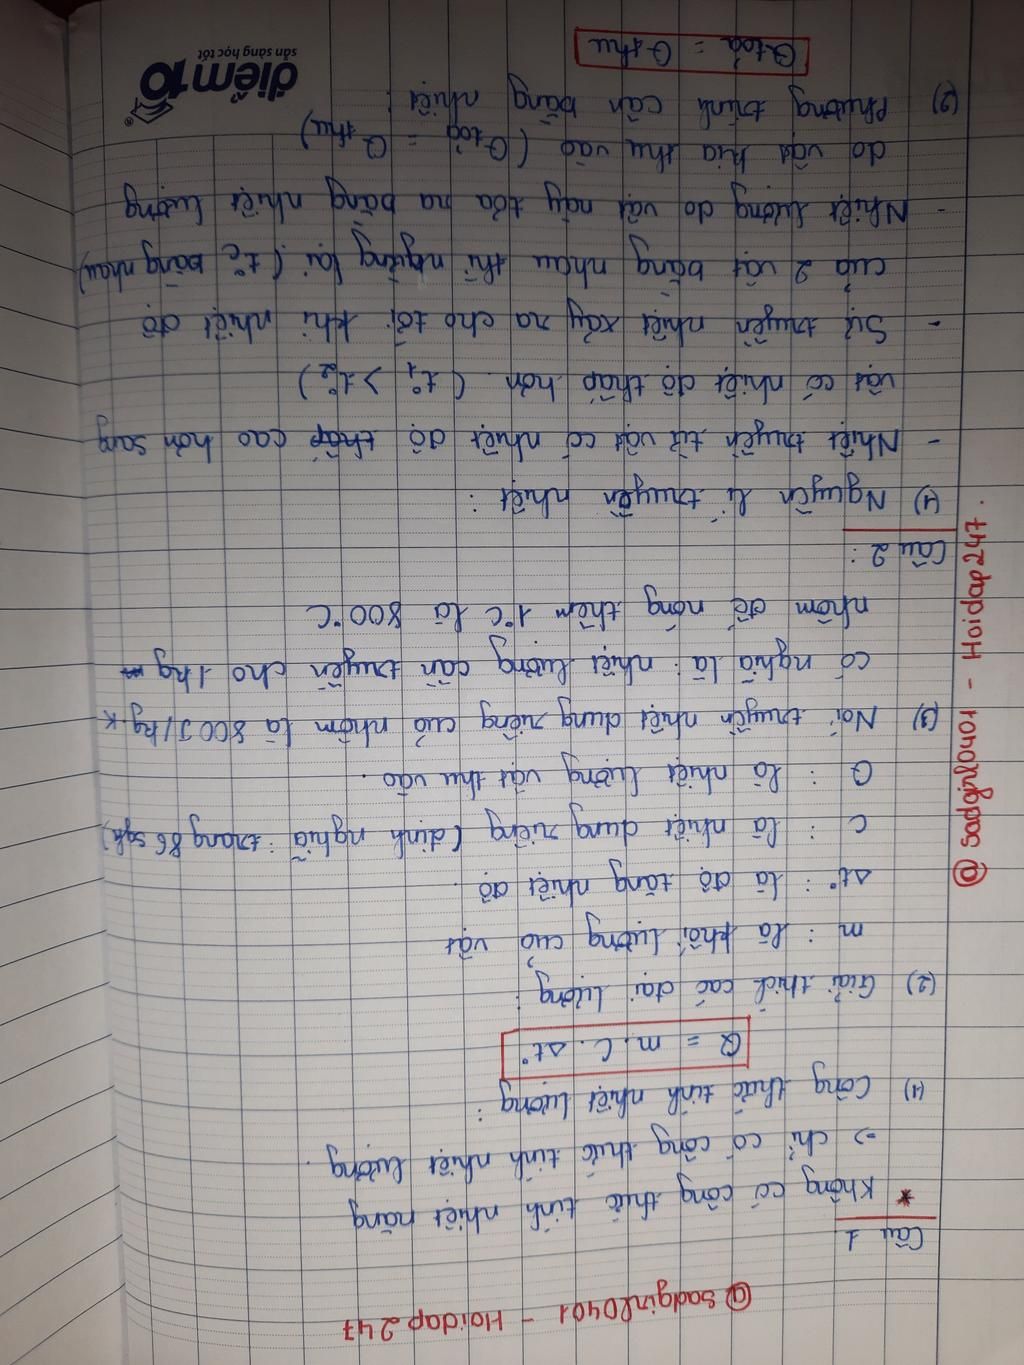 @sadginl0401 - Hoidap247
Câu 1
* Không có công thức tính nhiệt năng
=> chỉ có công thức tính nhiệt lượng.
(1) Công thức tính nhiệt lượng :
Q = m.C.Δt°
(2) Giải thích các đại lượng :
m : là khối lượng của vật
Δt° : là độ tăng nhiệt độ.
C : là nhiệt dung riêng (định nghĩa : trang 86 sgk)
Q : là nhiệt lượng vật thu vào.
(3) Nói truyền nhiệt dung riêng của nhôm là 800J/kg.K
có nghĩa là : nhiệt lượng cần truyền cho 1kg
nhôm để nóng thêm 1°C là 800°C
Câu 2 :
(1) Nguyên lí truyền nhiệt :
- Nhiệt truyền từ vật có nhiệt độ thấp cao hơn sang
vật có nhiệt độ thấp hơn. (t°1 > t°2)
- Sự truyền nhiệt xảy ra cho tới khi nhiệt độ
của 2 vật bằng nhau thì ngừng lại (t°C bằng nhau)
- Nhiệt lượng do vật này tỏa ra bằng nhiệt lượng
do vật kia thu vào (Q tỏa = Q thu)
(2) Phương trình cân bằng nhiệt :
Q tỏa = Q thu
@sadginl0401 - Hoidap247.
điểm10
sẵn sàng học tốt